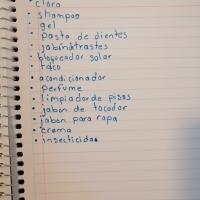 • cloro
• shampoo
• gel
• pasta de dientes
• jabón trastes
• bloqueador solar
• talco
• acondicionador
• perfume
• limpiador de pisos
• jabon de tocador
• jabon para ropa
• crema
• insecticidas